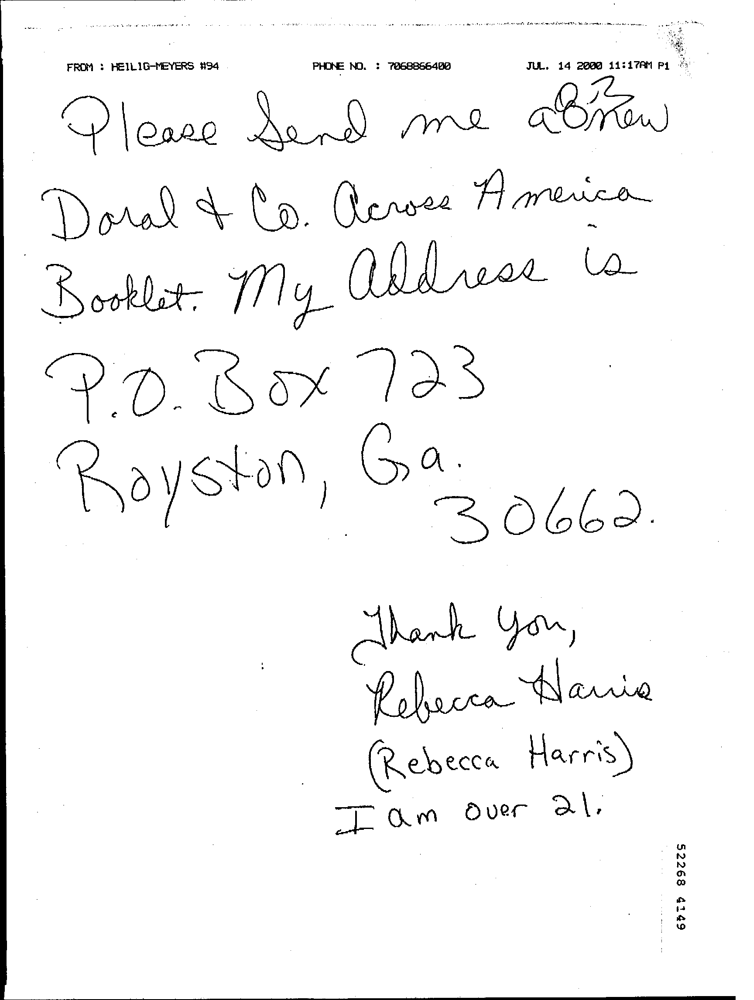 FROM : HEILIG-MEYERS #94 PHONE NO. : 7068866400 JUL. 14 2000 11:17AM P1
Please Send me a new
Doral & Co. Across America
Booklet. My Address is
P.O. Box 723
Royston, Ga.
30662.
Thank you,
Rebecca Harris
(Rebecca Harris)
I am over 21.
52268 4149